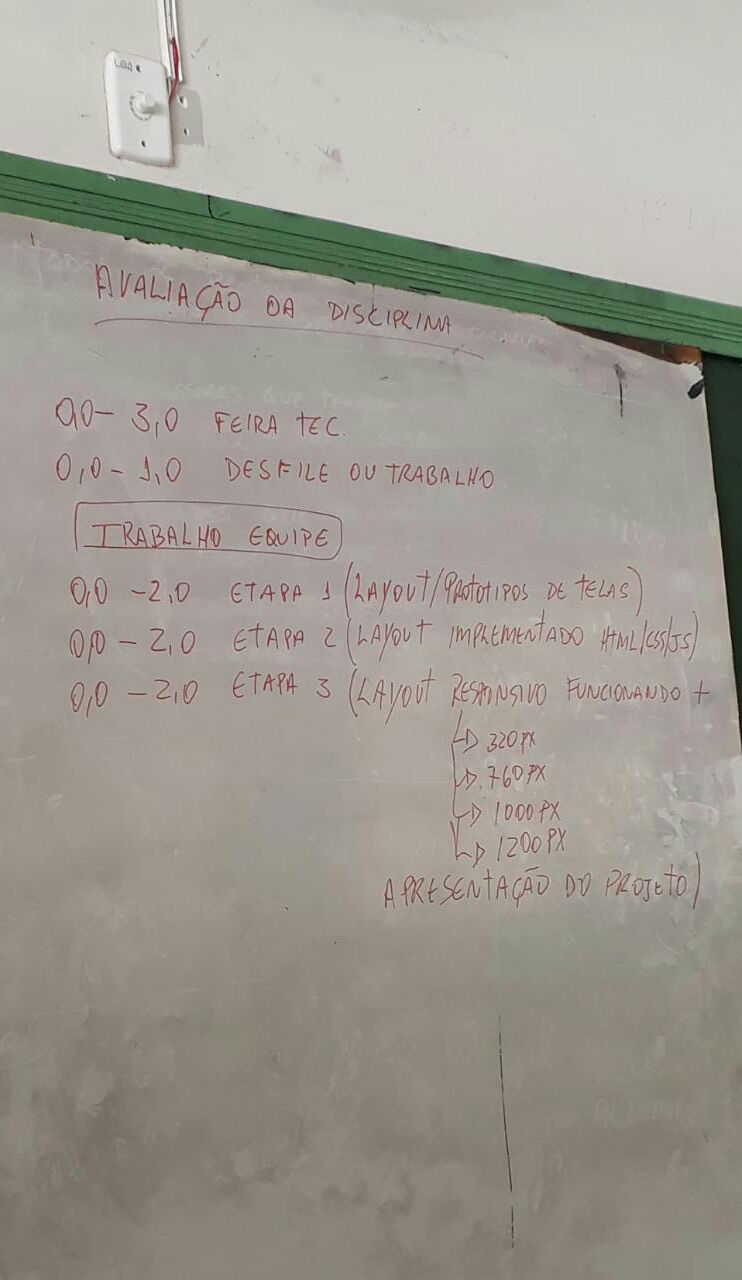 AVALIAÇÃO DA DISCIPLINA
0,0 - 3,0 FEIRA TEC.
0,0 - 1,0 DESFILE OU TRABALHO
TRABALHO EQUIPE
0,0 - 2,0 ETAPA 1 (LAYOUT/PROTOTIPOS DE TELAS)
0,0 - 2,0 ETAPA 2 (LAYOUT IMPLEMENTADO HTML/CSS/JS)
0,0 - 2,0 ETAPA 3 (LAYOUT RESPONSIVO FUNCIONANDO +
320PX
760PX
1000PX
1200PX
APRESENTAÇÃO DO PROJETO)